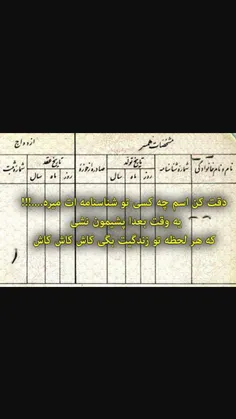 ازدواج
مشخصات همسر
نام و نام خانوادگی
شماره شناسنامه
تاریخ تولد
روز ماه سال
صادره از حوزه
تاریخ عقد
روز ماه سال
شماره ثبت
دقت کن اسم چه کسی تو شناسنامه ات میره....!!!
یه وقت بعدا پشیمون نشی
که هر لحظه تو زندگیت بگی کاش کاش کاش